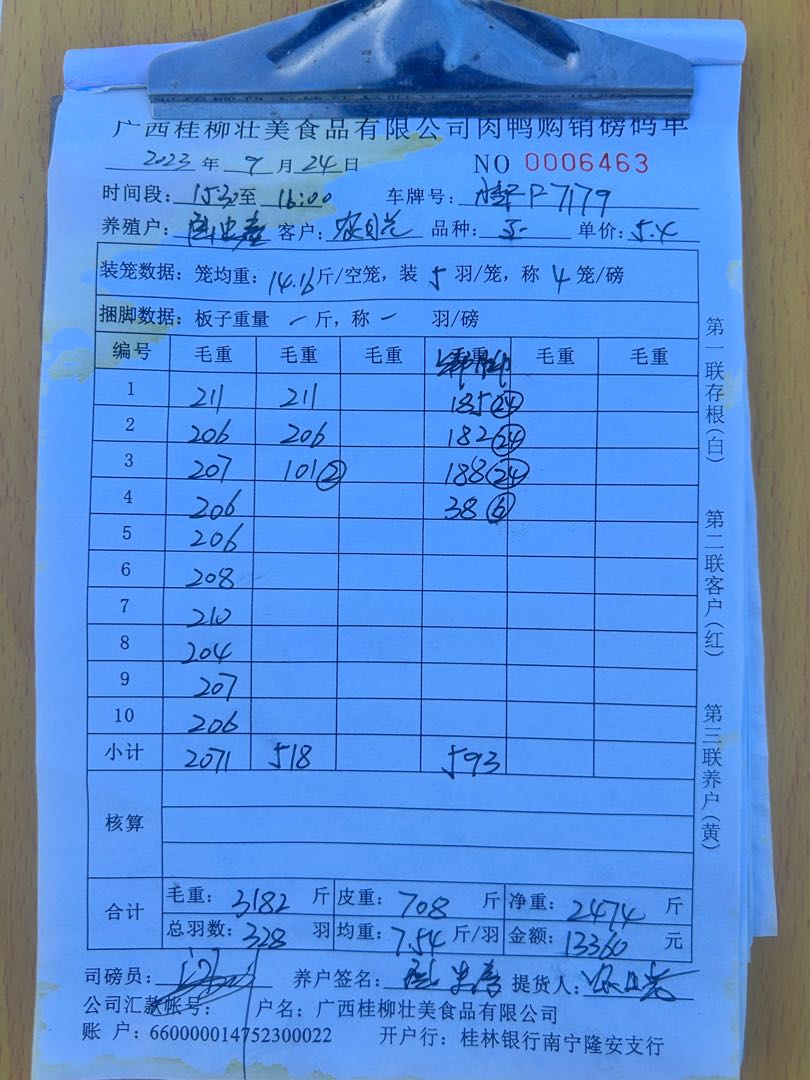 广西桂柳壮美食品有限公司肉鸭购销磅码单
2023年 9月 24日 NO 0006463
时间段: 15:30至 16:00 车牌号: 桂P7179
养殖户: 客户: 农日 品种: 单价: 5.4
装笼数据: 笼均重: 14.16斤/空笼, 装 5 羽/笼, 称 4 笼/磅
捆脚数据: 板子重量 一 斤, 称 一 羽/磅
编号 毛重 毛重 毛重 毛重 毛重 毛重
1 211 211 185 24
2 206 206 182 24
3 207 101 2 188 24
4 206 38 6
5 206
6 208
7 210
8 204
9 207
10 206
小计 2071 518 593
核算
合计 毛重: 3182 斤 皮重: 708 斤 净重: 2474 斤
总羽数: 328 羽 均重: 7.54 斤/羽 金额: 13360 元
司磅员: 养户签名: 提货人: 农日
公司汇款帐号: 户名: 广西桂柳壮美食品有限公司
账 户: 660000014752300022 开户行: 桂林银行南宁隆安支行
第一联存根(白)
第二联客户(红)
第三联养户(黄)